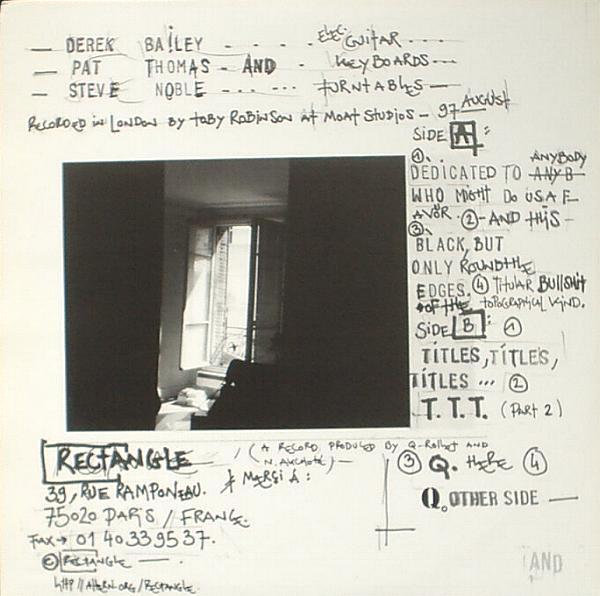 — DEREK BAILEY - - - - . ELEC. GUITAR - - - -
— PAT THOMAS - AND - KEYBOARDS - - -
— STEVE NOBLE - - - - - - TURNTABLES - —
RECORDED IN LONDON BY TOBY ROBINSON AT MOAT STUDIOS - 97 AUGUST
SIDE A :
①. ANYBODY
DEDICATED TO ANYB
WHO MIGHT DO US A F
AVOR. ② - AND THIS -
③.
BLACK, BUT
ONLY ROUND THE
EDGES. ④ TITULAR BULLSHIT
OF THE TOPOGRAPHICAL KIND.
SIDE B : ①
TITLES, TITLES,
TITLES ... ②
T.T.T. (PART 2)
③ Q. HERE ④
Q. OTHER SIDE —
RECTANGLE / (A RECORD PRODUCED BY Q. ROLLET AND
N. AKCHOTÉ) —
39, RUE RAMPONEAU. / MERSI À :
75020 PARIS / FRANCE.
FAX → 01 40 33 95 37.
© RECTANGLE — .
HTTP://ALTERN.ORG/RECTANGLE.
AND